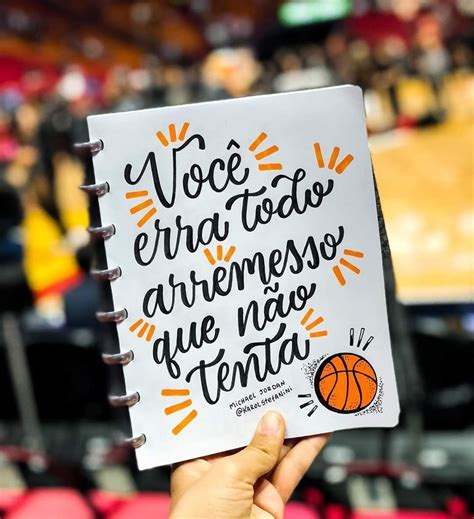 Você
erra todo
arremesso
que não
tenta
MICHAEL JORDAN
@KAROLSTEFANINI